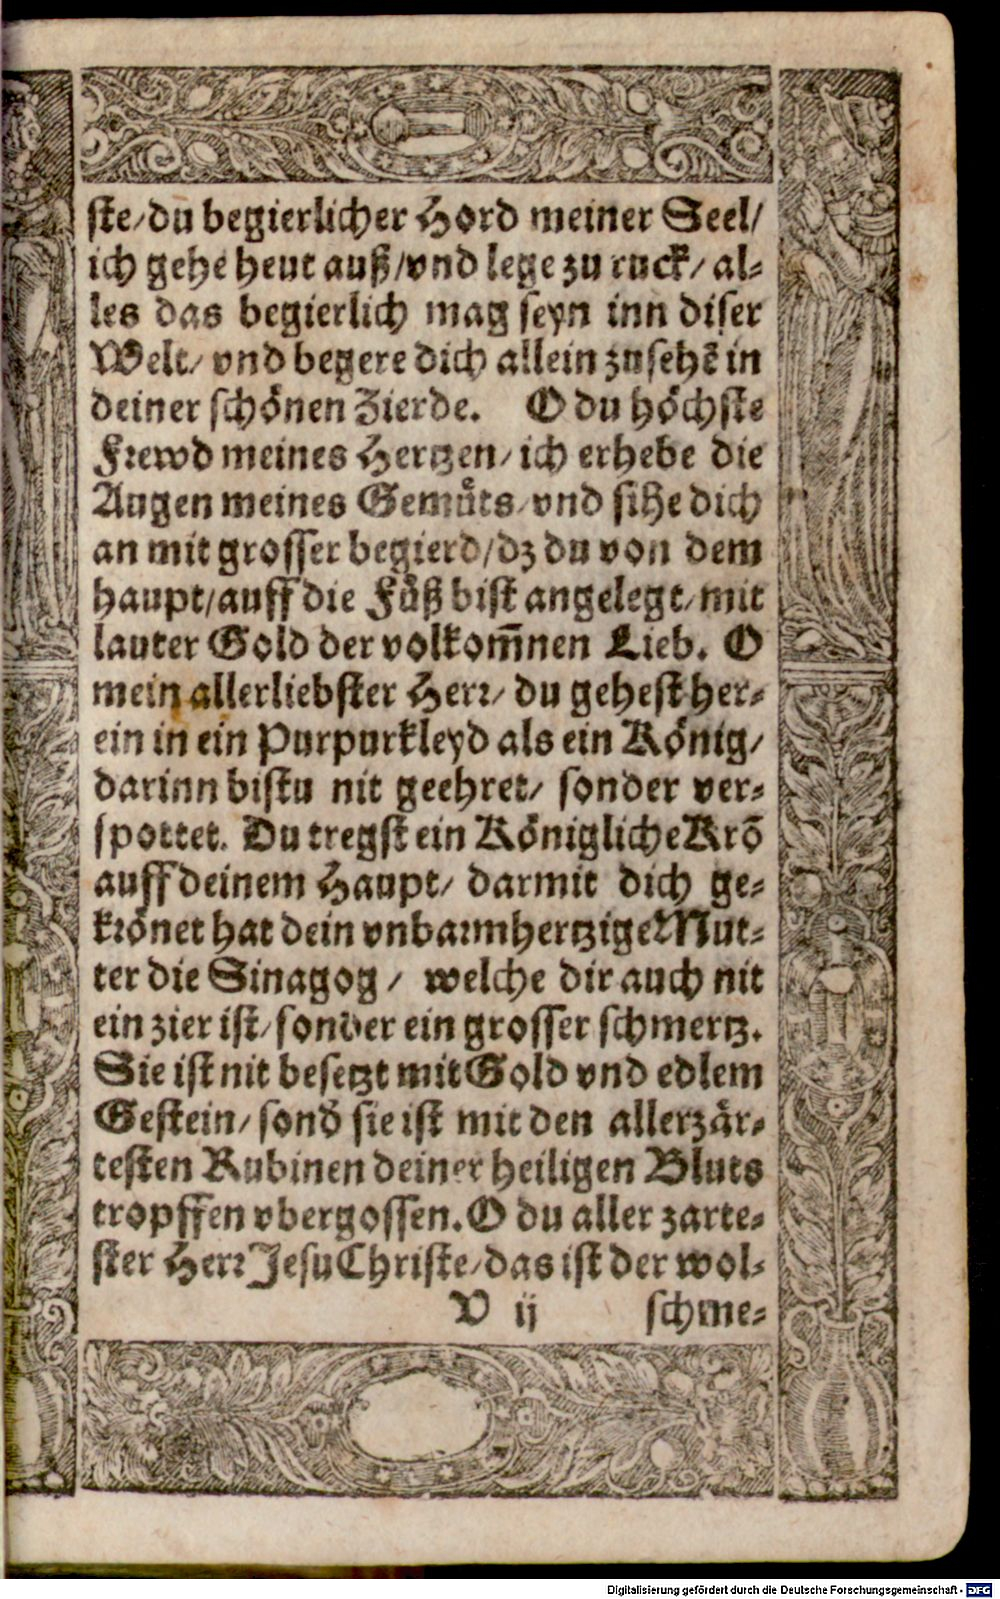 ste/du begierlicher Hord meiner Seel/
ich gehe heut auß/vnd lege zu ruck/ al-
les das begierlich mag seyn inn diser
Welt/ vnd begere dich allein zusehē in
deiner schönen Zierde. O du höchste
Frewd meines Hertzen/ich erhebe die
Augen meines Gemüts/vnd sihe dich
an mit grosser begierd/dz du von dem
haupt/auff die Füß bist angelegt/mit
lauter Gold der volkom̄nen Lieb. O
mein allerliebster Herr/ du gehest her-
ein in ein Purpurkleyd als ein König/
darinn bistu nit geehret/ sonder ver-
spottet. Du tregst ein Königliche Krō
auff deinem Haupt/ darmit dich ge-
krönet hat dein vnbarmhertzige Mut-
ter die Sinagog/ welche dir auch nit
ein zier ist/sonder ein grosser schmertz.
Sie ist nit besetzt mit Gold vnd edlem
Gestein/sond̄ sie ist mit den allerzär-
testen Rubinen deiner heiligen Bluts
tropffen vbergossen. O du aller zarte-
ster Herr Jesu Christe/das ist der wol-
V ij schme-
Digitalisierung gefördert durch die Deutsche Forschungsgemeinschaft - DFG